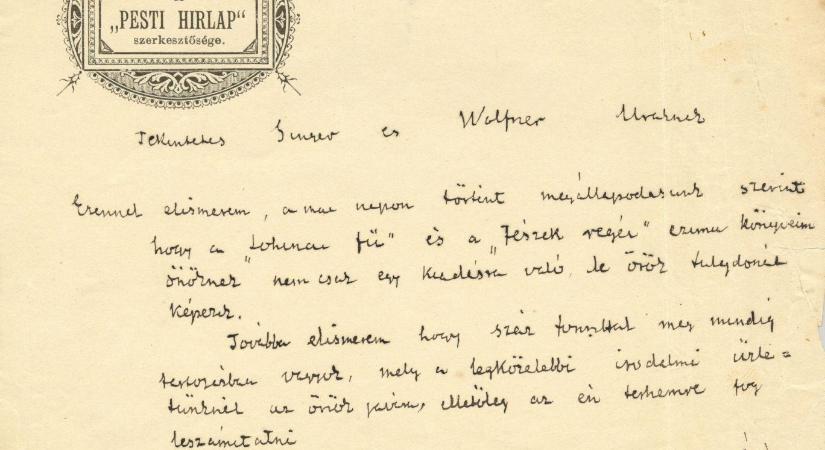 „PESTI HIRLAP“
szerkesztősége.
Tekintetes Singer és Wolfner Uraknak
Ezennel elismerem, a mai napon történt megállapodásunk szerint
hogy a „Lohinai fű“ és a „Fészek regéi“ czimü könyveim
önöknek nem csak egy kiadásra való, de örök tulajdonát
képezik.
Továbbá elismerem hogy száz forinttal még mindig
tartozásban vagyok, mely a legközelebbi irodalmi üzle=
tünknél az önök javára, illetőleg az én terhemre fog
leszámitatni